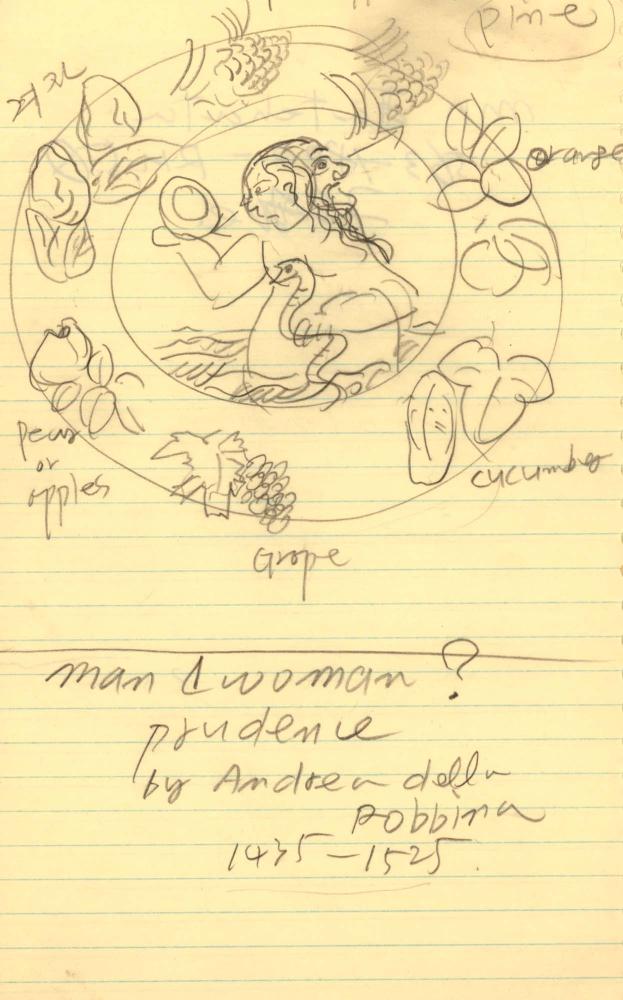 Pine
orange
pear
or
apples
cucumber
Grape
man & woman ?
prudence
by Andrea della
Robbina
1435 – 1525.